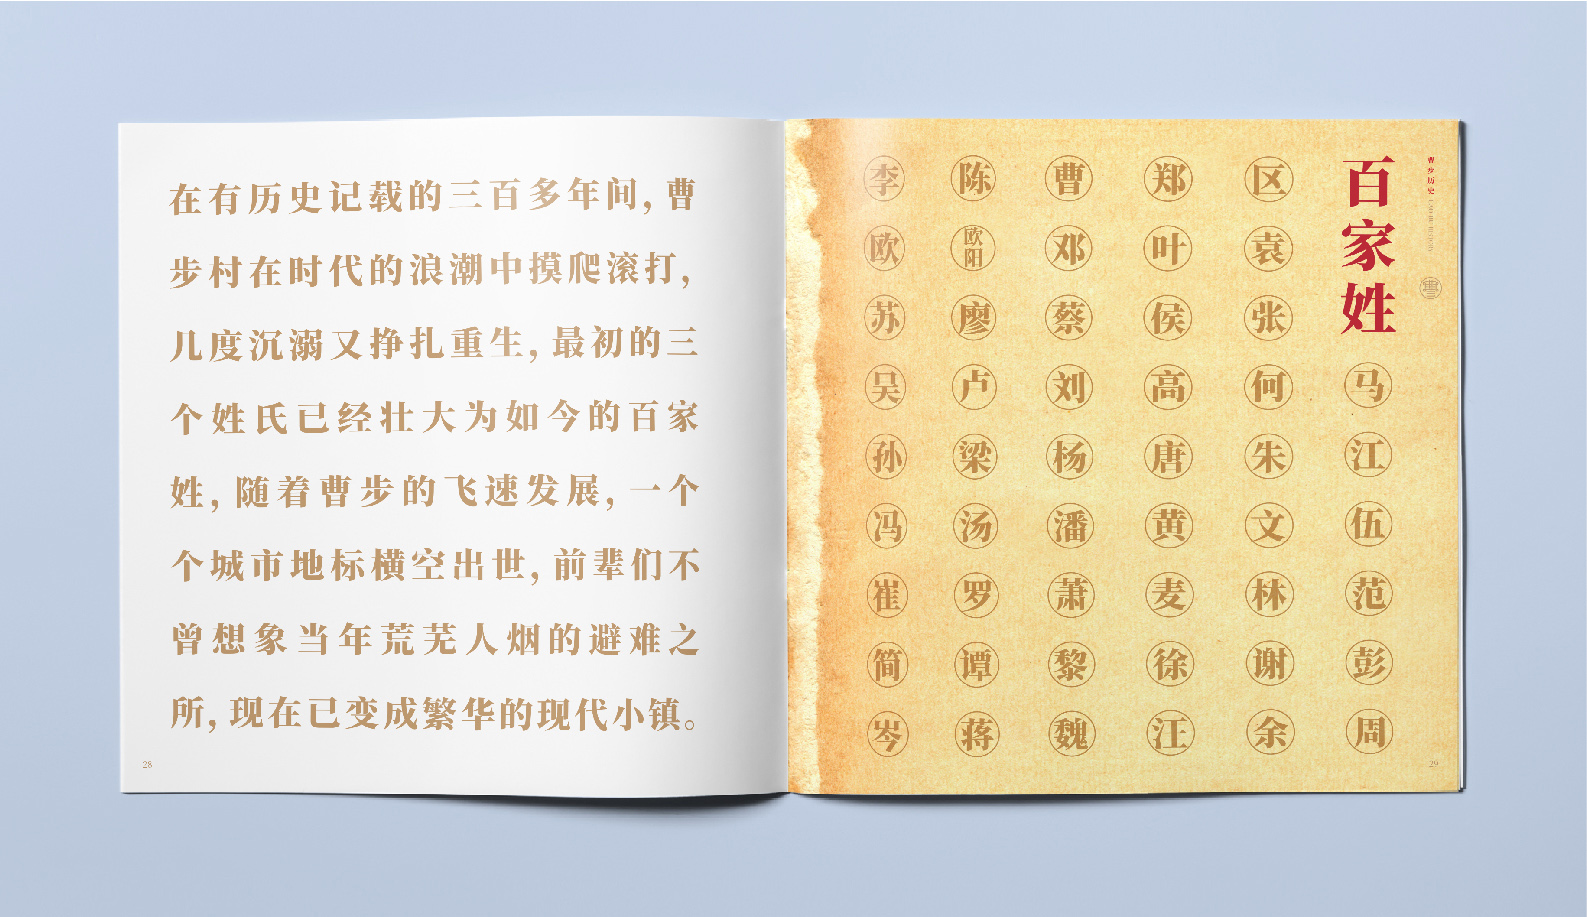 在有历史记载的三百多年间，曹
步村在时代的浪潮中摸爬滚打，
几度沉溺又挣扎重生，最初的三
个姓氏已经壮大为如今的百家
姓，随着曹步的飞速发展，一个
个城市地标横空出世，前辈们不
曾想象当年荒芜人烟的避难之
所，现在已变成繁华的现代小镇。
28
曹步历史
百家姓
马
江
伍
范
彭
周
区
袁
张
何
朱
文
林
谢
余
郑
叶
侯
高
唐
黄
麦
徐
汪
曹
邓
蔡
刘
杨
潘
萧
黎
魏
陈
欧阳
廖
卢
梁
汤
罗
谭
蒋
李
欧
苏
吴
孙
冯
崔
简
岑
29